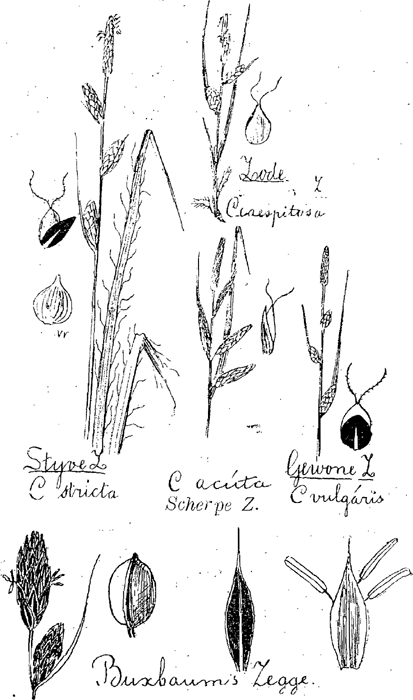 Zode Z
C caespitosa
vr
Styve Z
C stricta
C acúta
Scherpe Z.
Gewone Z
C vulgáris
Buxbaum's Zegge.